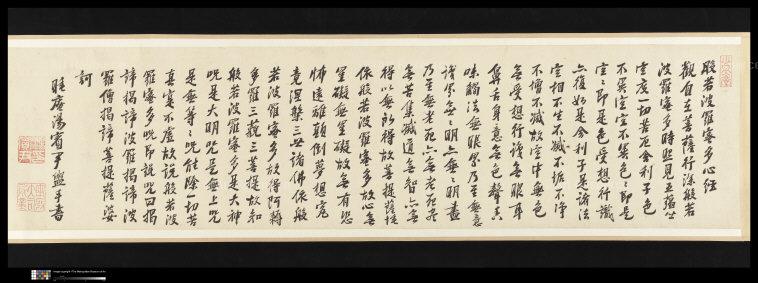 般若波羅蜜多心經
觀自在菩薩行深般若
波羅蜜多時照見五蘊皆
空度一切苦厄舍利子色
不異空空不異色色即是
空空即是色受想行識
亦復如是舍利子是諸法
空相不生不滅不垢不淨
不增不減故空中無色
無受想行識無眼耳
鼻舌身意無色聲香
味觸法無眼界乃至無意
識界無無明亦無無明盡
乃至無老死亦無老死盡
無苦集滅道無智亦無
得以無所得故菩提薩埵
依般若波羅蜜多故心無
罣礙無罣礙故無有恐
怖遠離顛倒夢想究
竟涅槃三世諸佛依般
若波羅蜜多故得阿耨
多羅三藐三菩提故知
般若波羅蜜多是大神
咒是大明咒是無上咒
是無等等咒能除一切苦
真實不虛故說般若波
羅蜜多咒即說咒曰揭
諦揭諦波羅揭諦波
羅僧揭諦菩提薩婆
訶